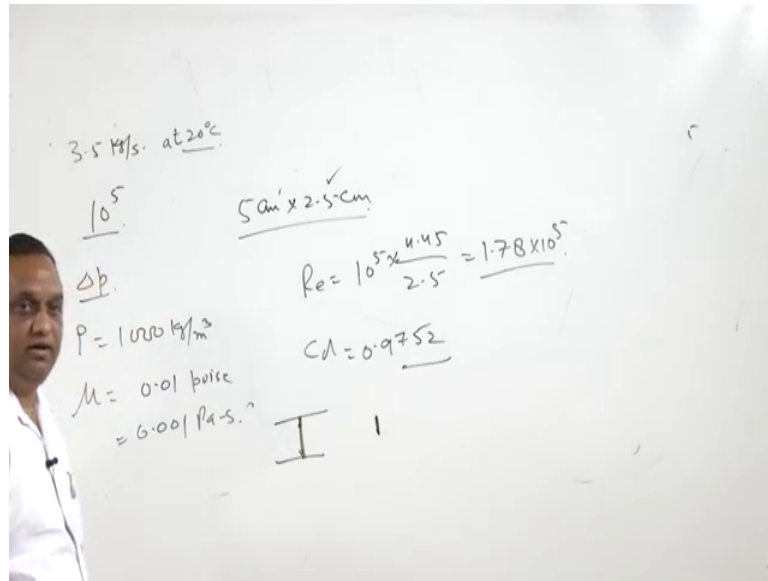 3.5 kg/s. at 20°C
10^5
5 cm × 2.5 cm
Δp.
Re = 10^5 × 4.45 / 2.5 = 1.78 × 10^5.
ρ = 1000 kg/m^3
Cd = 0.9752
μ = 0.01 poise
= 0.001 Pa-s.